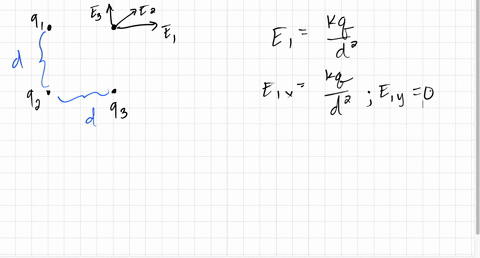 q₁ E₃ E₂ E₁
d
q₂ d q₃
E₁ = kq/d²
E₁ₓ = kq/d² ; E₁y = 0